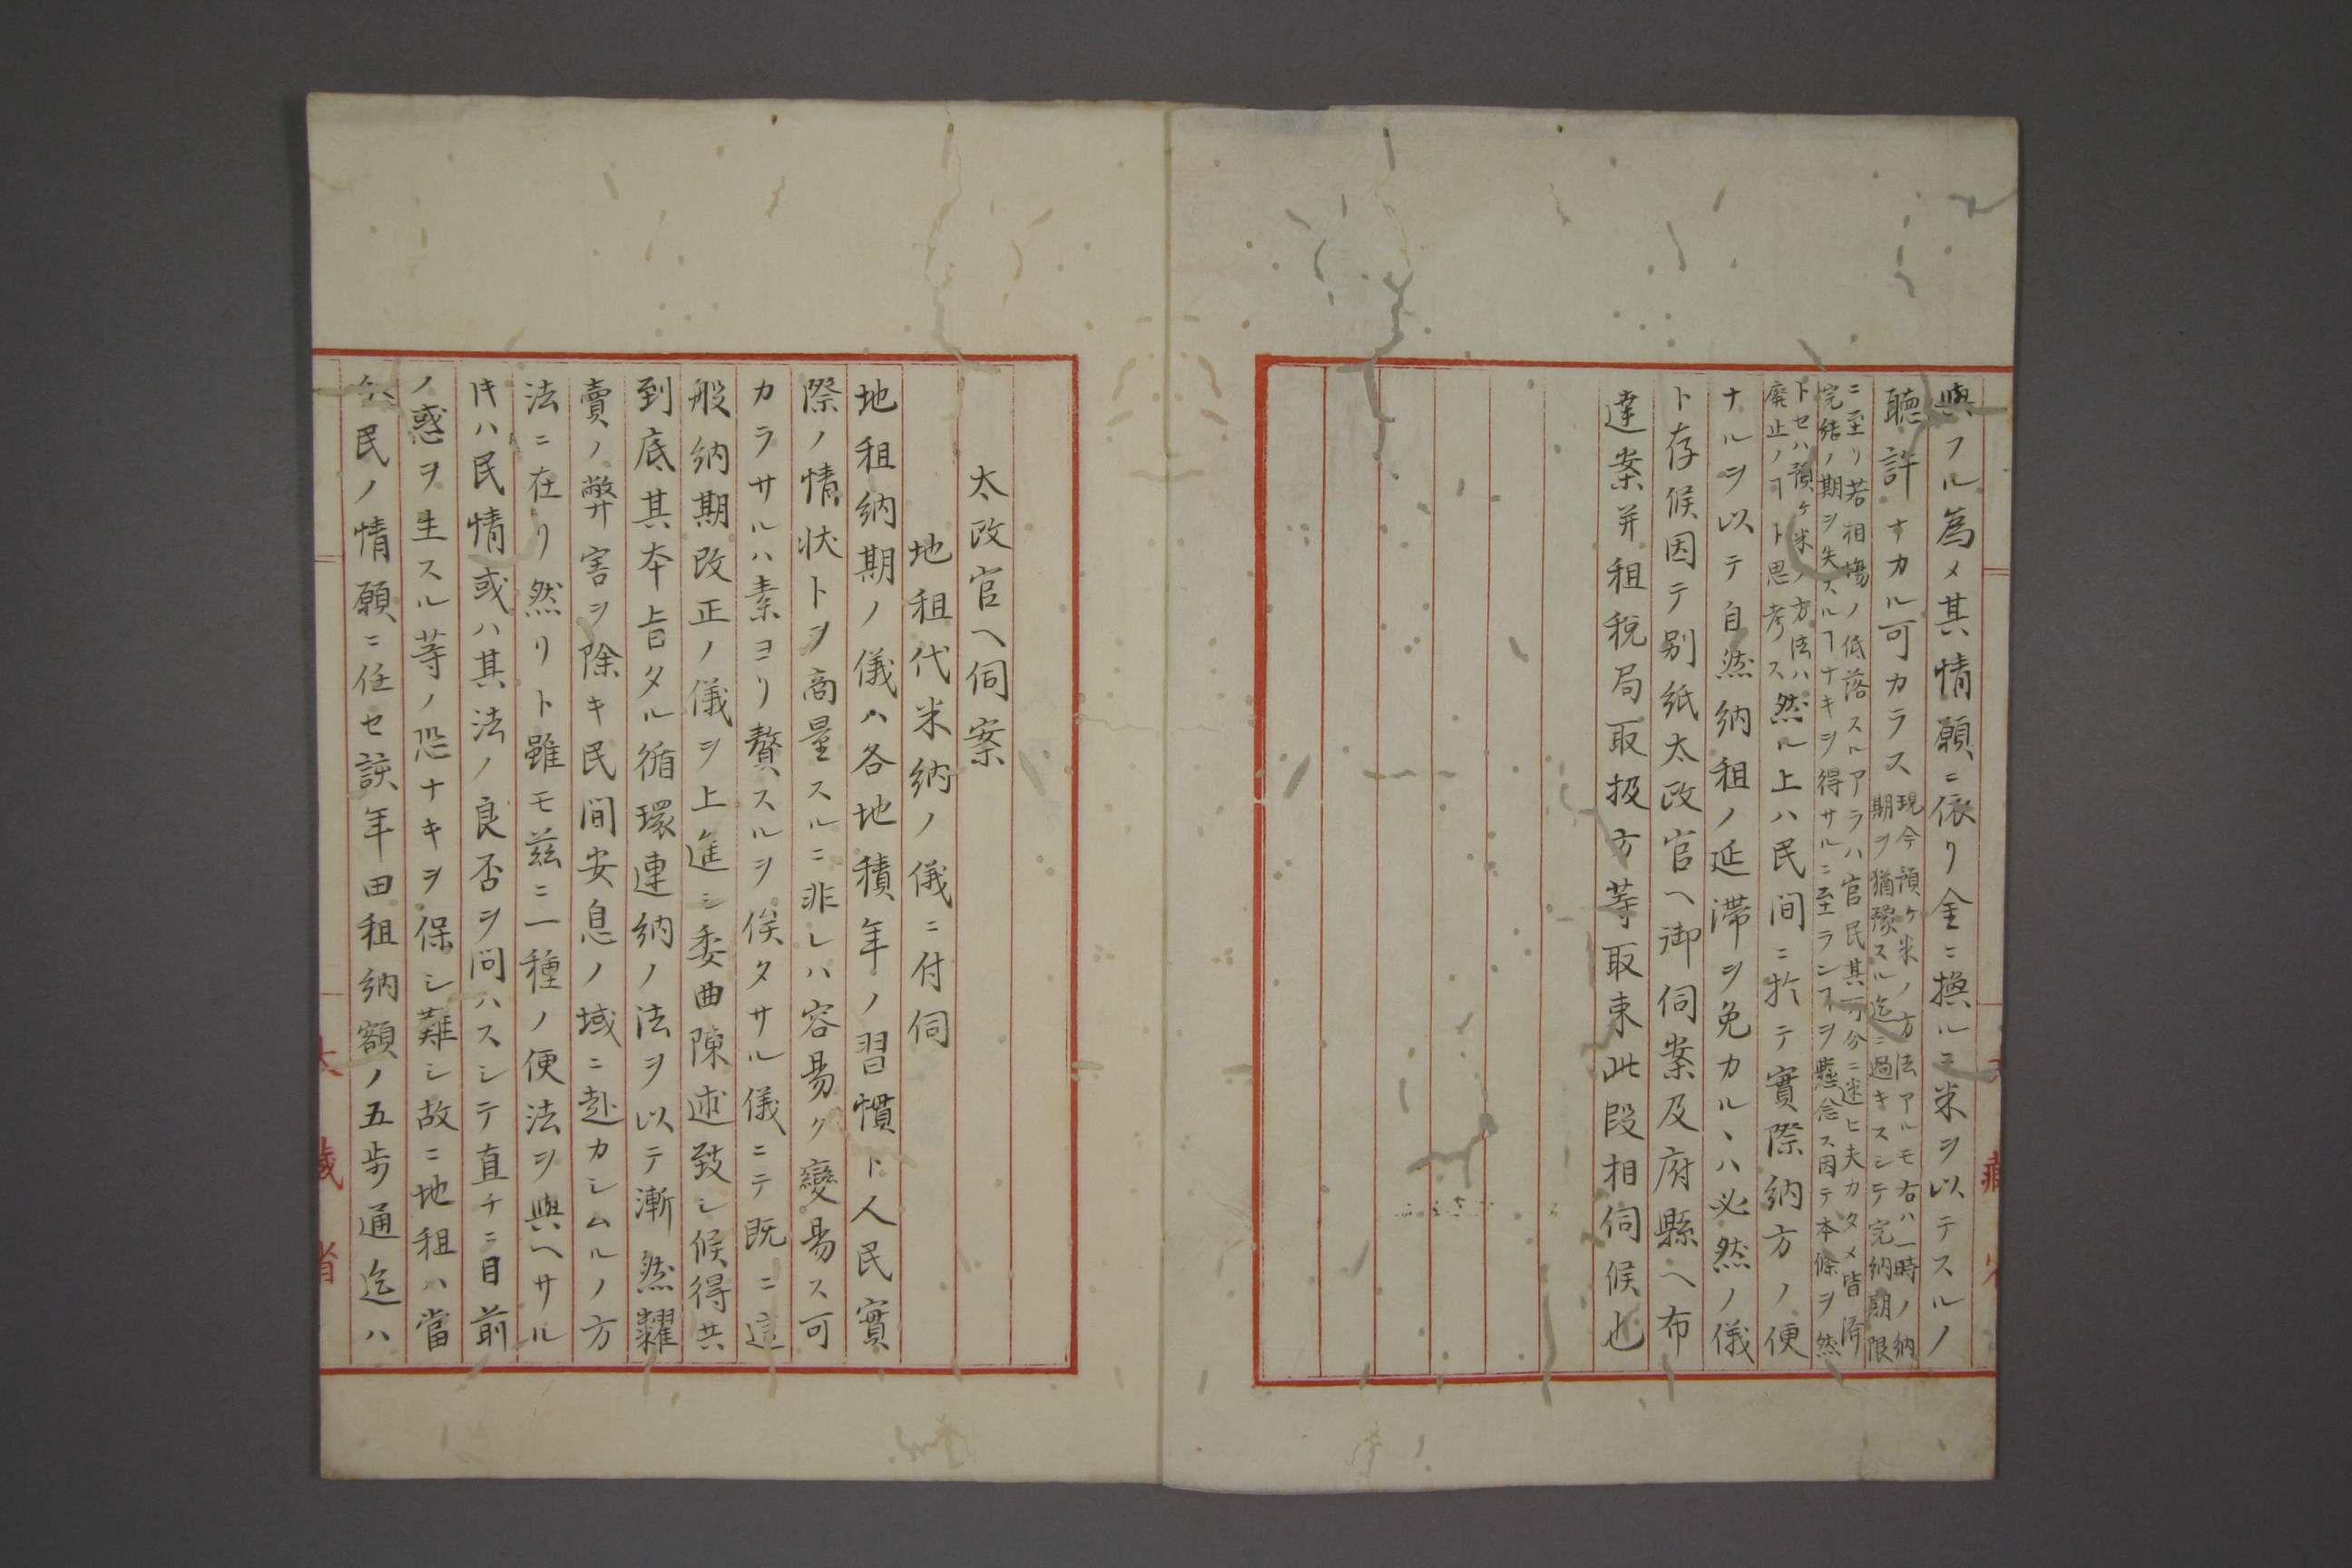 與フル為メ其情願ニ依リ金ニ換ルニ米ヲ以テスルノ
聴許ナカル可カラス
現今預ケ米ノ方法アルモ右ハ一時ノ納
期ヲ猶豫スル迄ニ過キスシテ完納期限
ニ至リ若相塲ノ低落スルアラハ官民其可分ニ迷ヒ夫カタメ皆濟
完結ノ期ヲ失スルヿナキヲ得サルニ至ランヿヲ懸念ス因テ本條ヲ然
トセハ預ケ米ノ方法ハ
廃止ノヿト思考ス
然ル上ハ民間ニ於テ實際納方ノ便
ナルヲ以テ自然納租ノ延滞ヲ免カルヽハ必然ノ儀
ト存候因テ別紙太政官ヘ御伺案及府縣ヘ布
達案并租税局取扱方等取束此段相伺候也
太政官ヘ伺案
地租代米納ノ儀ニ付伺
地租納期ノ儀ハ各地積年ノ習慣ト人民實
際ノ情状トヲ商量スルニ非レハ容易ク變易ス可
カラサルハ素ヨリ贅スルヲ俟タサル儀ニテ既ニ這
般納期改正ノ儀ヲ上進シ委曲陳述致シ候得共
到底其本旨タル循環連納ノ法ヲ以テ漸然糶
賣ノ弊害ヲ除キ民間安息ノ域ニ赴カシムルノ方
法ニ在リ然リト雖モ茲ニ一種ノ便法ヲ與ヘサル
片ハ民情或ハ其法ノ良否ヲ問ハスシテ直チニ目前
ノ惑ヲ生スル等ノ恐ナキヲ保シ難シ故ニ地租ハ當
今民ノ情願ニ任セ該年田租納額ノ五歩通迄ハ
大藏省